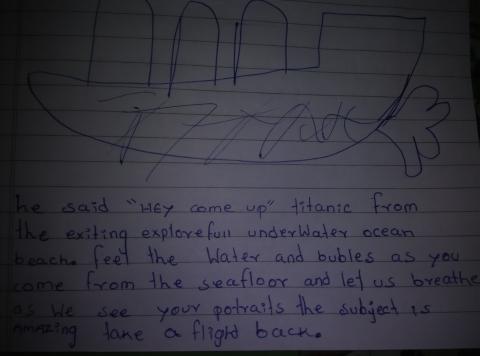 he said "HEY come up" titanic from
the exiting explorefull underWater ocean
beach. feel the Water and bubles as you
come from the seafloor and let us breathe
as We see your potraits the subject is
AMAZING take a flight back.